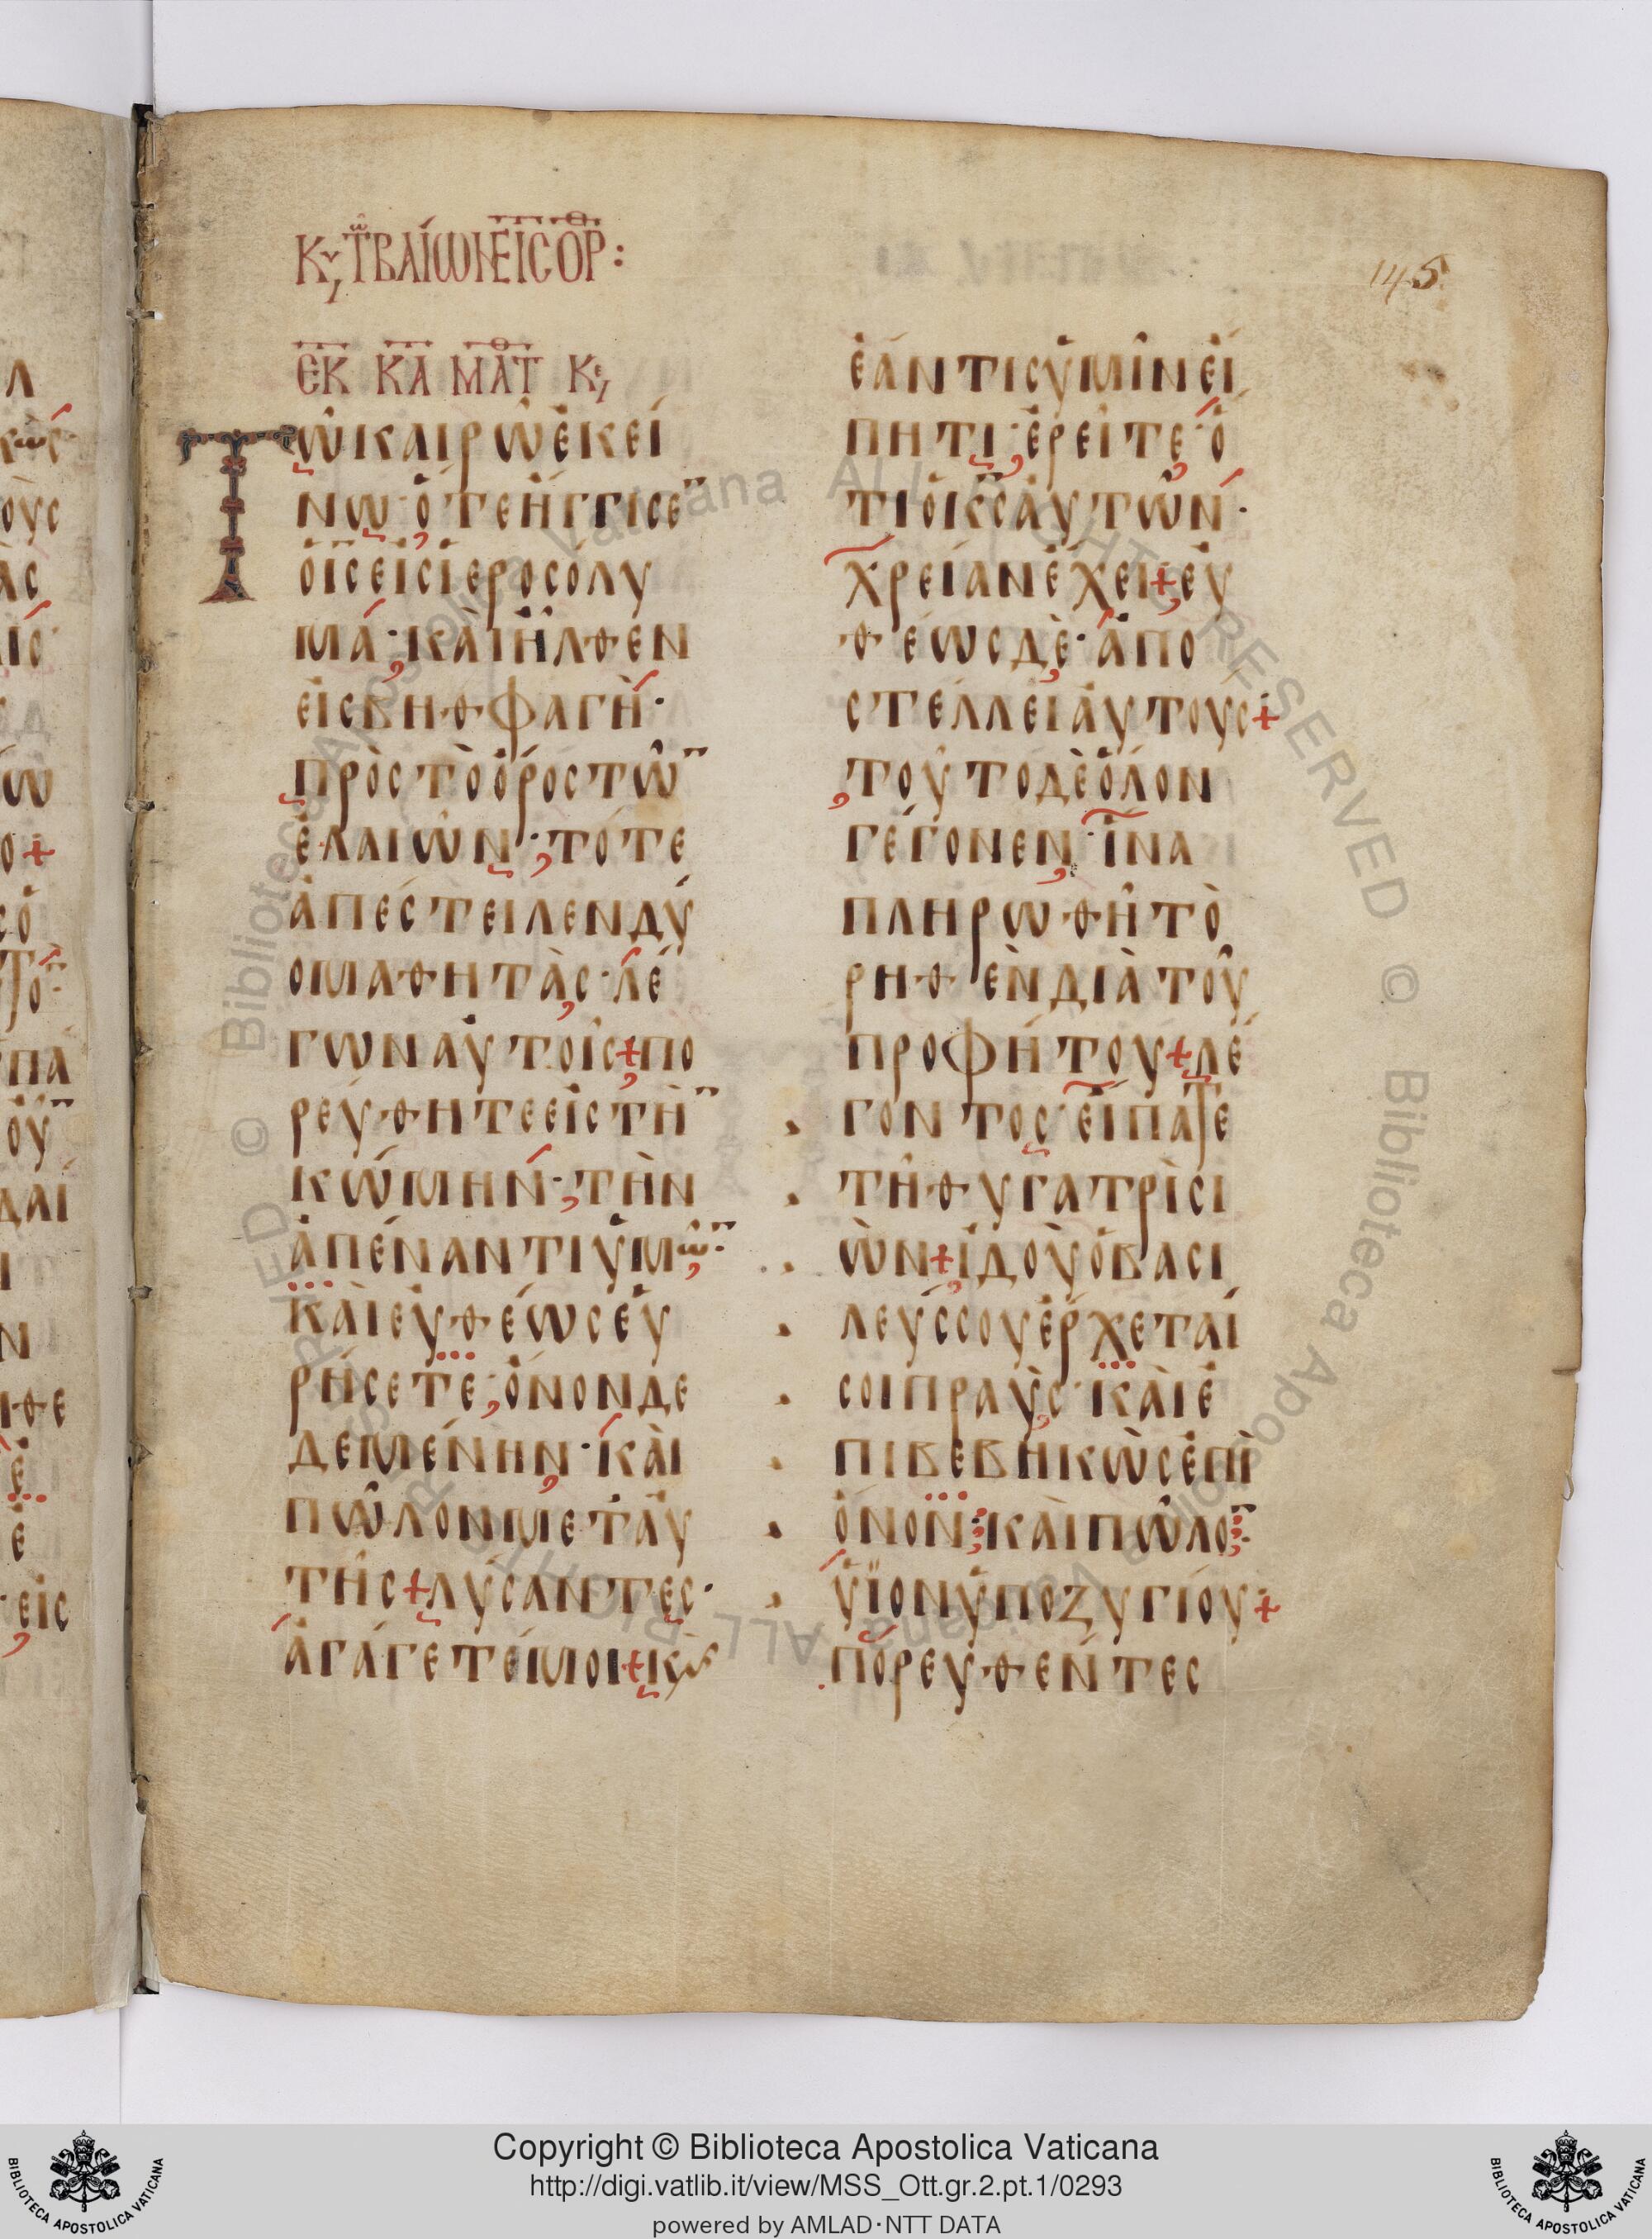 Κυ, Τῶ ΒΑΐΩΝ ΕΙΣ ΟΡΘ:
145
ΕΚ ΚΑ ΜΑΤΘ Κε,
Τῶ καιρῶ ἐκεί
νω· ὅτε ἤγγισε̄
ὁ ῑς̄ εἰς ἱεροσόλυ
μα· καὶ ἦλθεν
εἰς Βηθφαγὴ·
πρὸς τὸ ὄρος τῶ̄
ἐλαιῶν· τότε
ἀπέστειλεν δύ
ο μαθητὰς· λέ
γων αὐτοῖς + πο
ρεύθητε εἰς τὴ̄
κώμην· τὴν
ἀπέναντι ὑμῶ̄·
καὶ εὐθέως εὑ
ρήσετε· ὄνον δε
δεμένην· καὶ
πῶλον μετ' αὐ
τῆς + λύσαντες·
ἀγάγετέ μοι + κὰς
ἐάν τις ὑμῖν εἴ
πη τι· ἐρεῖτε· ὅ
τι ὁ κ̄ς̄ αὐτῶν·
χρείαν ἔχει + εὐ
θέως δὲ· ἀπο
στέλλει αὐτούς +
τοῦτο δὲ ὅλον
γέγονεν· ἵνα
πληρωθῆ τὸ
ρηθὲν διὰ τοῦ
προφήτου + λέ
γοντος· εἴπατε
τῆ θυγατρὶ Σι
ὼν + ἰδοὺ ὁ βασι
λεύς σου ἔρχεταί
σοι πραῢς· καὶ ἐ
πιβεβηκὼς ἐπὶ
ὄνον· καὶ πῶλο̄·
ὑϊὸν ὑποζυγίου +
πορευθέντες
Copyright © Biblioteca Apostolica Vaticana
http://digi.vatlib.it/view/MSS_Ott.gr.2.pt.1/0293
powered by AMLAD·NTT DATA